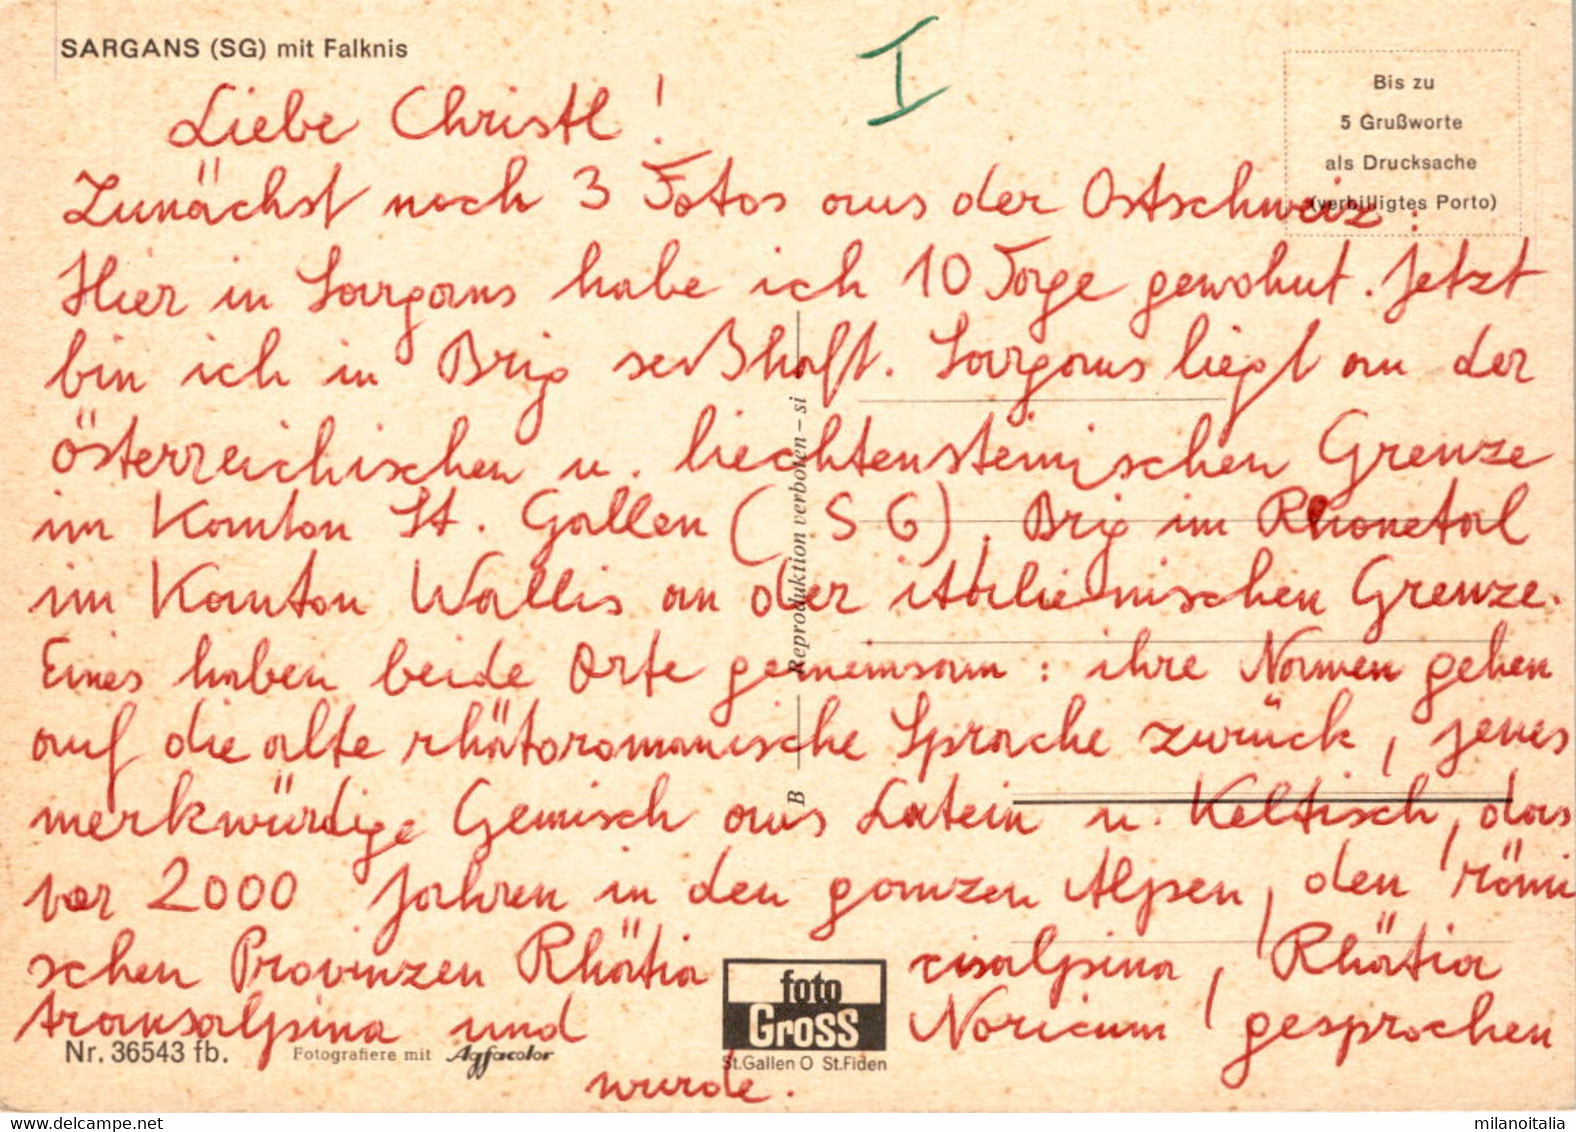 SARGANS (SG) mit Falknis
I
Bis zu
5 Grußworte
als Drucksache
(verbilligtes Porto)
Liebe Christl!
Zunächst noch 3 Fotos aus der Ostschweiz.
Hier in Sargans habe ich 10 Tage gewohnt. Jetzt
bin ich in Brig seßhaft. Sargans liegt an der
österreichischen u. liechtensteinischen Grenze
im Kanton St. Gallen (SG). Brig im Rhonetal
im Kanton Wallis an der italienischen Grenze.
Eines haben beide Orte gemeinsam: ihre Namen gehen
auf die alte rhätoromanische Sprache zurück, jenes
merkwürdige Gemisch aus Latein u. Keltisch, das
vor 2000 Jahren in den ganzen Alpen, den römi
schen Provinzen Rhätia cisalpina, Rhätia
transalpina und Noricum gesprochen
wurde.
B — Reproduktion verboten – si
foto
Gross
St.Gallen O St.Fiden
Nr. 36543 fb.
Fotografiere mit Agfacolor
delcampe.net
milanoitalia